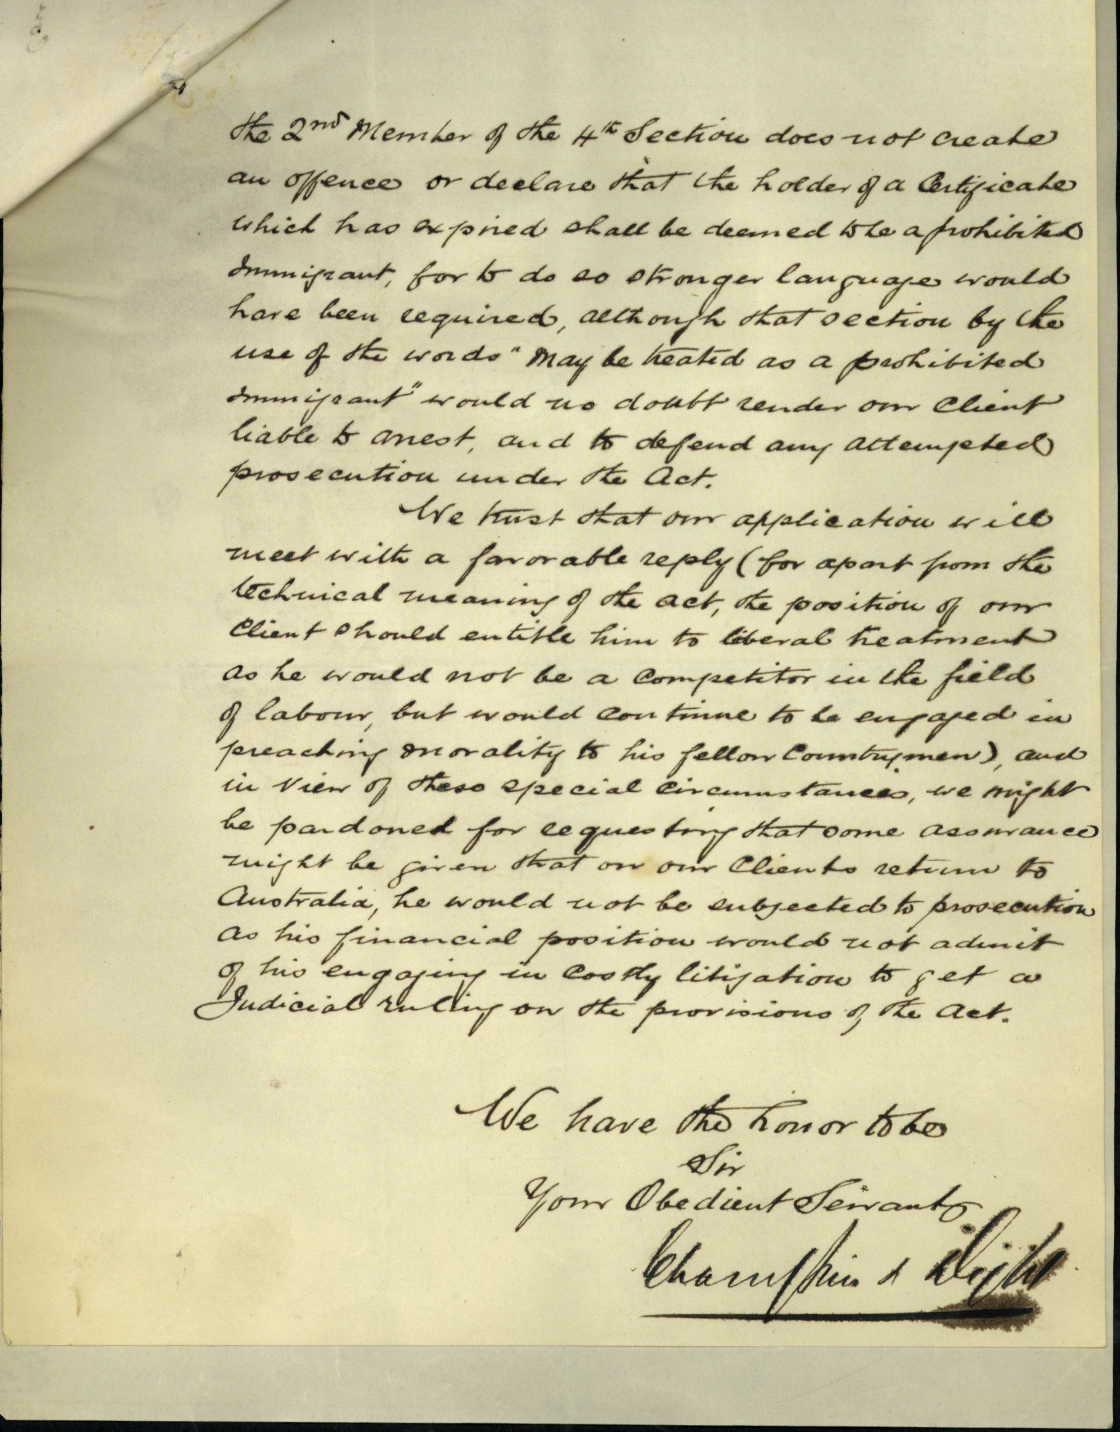 the 2nd Member of the 4th Section does not create
an offence or declare that the holder of a Certificate
which has expired shall be deemed to be a prohibited
Immigrant, for to do so stronger language would
have been required, although that section by the
use of the words "May be treated as a prohibited
Immigrant" would no doubt render our Client
liable to arrest, and to defend any attempted
prosecution under the Act.
We trust that our application will
meet with a favorable reply (for apart from the
technical meaning of the act, the position of our
Client should entitle him to liberal treatment
as he would not be a Competitor in the field
of labour, but would continue to be engaged in
preaching morality to his fellow Countrymen), and
in view of these special circumstances, we might
be pardoned for requesting that some assurance
might be given that on our Clients return to
Australia, he would not be subjected to prosecution
as his financial position would not admit
of his engaging in Costly litigation to get a
Judicial ruling on the provisions of the Act.
We have the honor to be
Sir
Your Obedient Servants
Champion & Dight